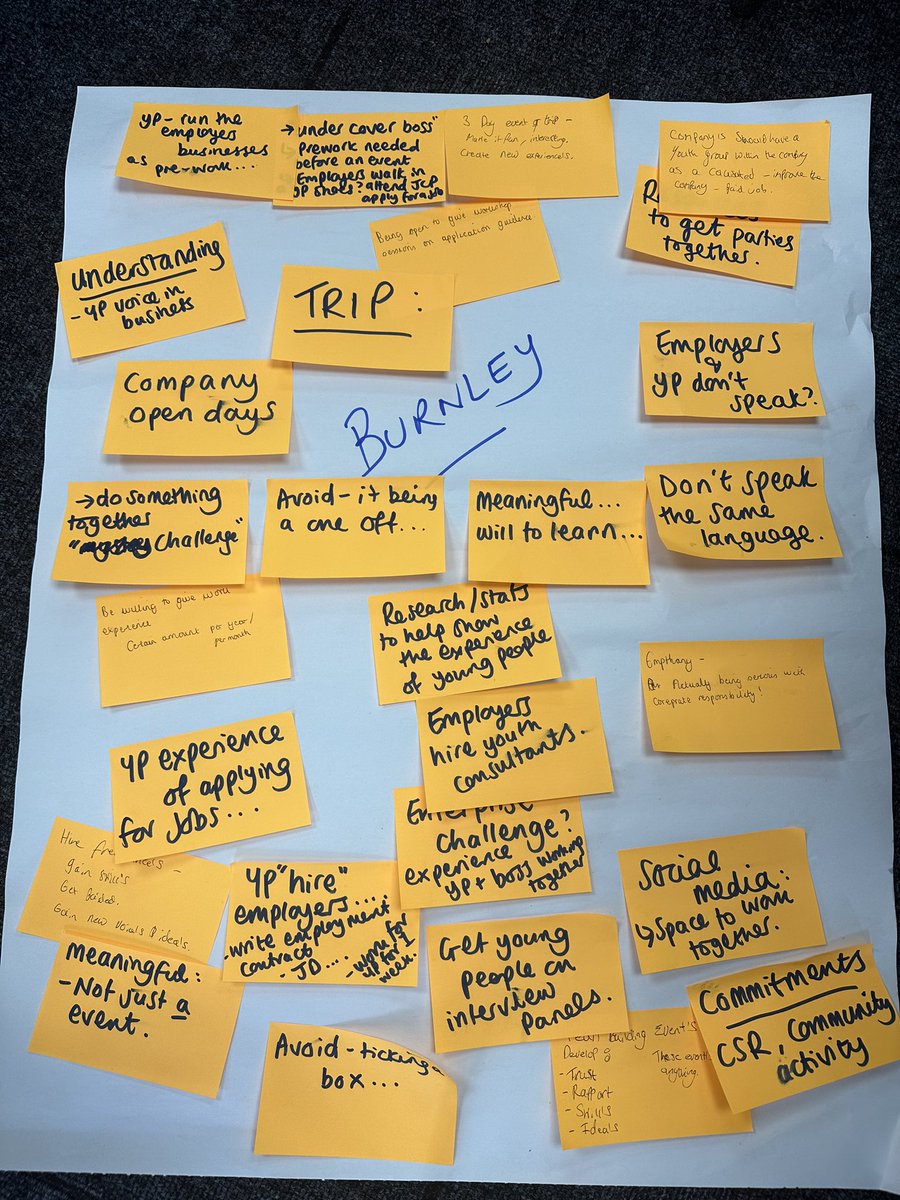 YP - run the
employers
businesses
as pre-work...
→ "under cover boss"
prework needed
before an event
Employers walk in
YP shoes? attend JCP
apply for a job
3 Day event or trip -
Make it fun, interesting.
Create new experiences.
Company is should have a
Youth group within the company
as a - improve the
company - paid job.
to get parties
together.
Being open to give workshop
sessions on application guidence
Understanding
- YP voice in
business
TRIP :
BURNLEY
Employers
& YP don't
speak?
Company
open days
→ do something
together
Challenge"
Avoid - it being
a one off...
Meaningful...
will to learn...
Don't speak
the same
language.
Be willing to give work
experience
Certain amount per year/
per month
Research/stats
to help show
the experience
of young people
Empthany -
Actually being serious with
Coreprate responsibility!
Employers
hire youth
consultants.
YP experience
of applying
for jobs...
Enterprise
challenge?
experience?
YP + boss working
together
Hire
gain skill's
Get paided.
Gain new voicals & ideals.
YP "hire"
employers...
- write employment
contract
- JD...
- work for
YP for 1
week.
Social
media:
↳ Space to work
together.
Meaningful:
- Not just a
event.
Get young
people on
interview
Panels.
Commitments
CSR, Community
activity
Avoid - ticking a
box...
Building Event's
Develop
- Trust
- Rapport
- Skills
- Ideals
These event
anything.